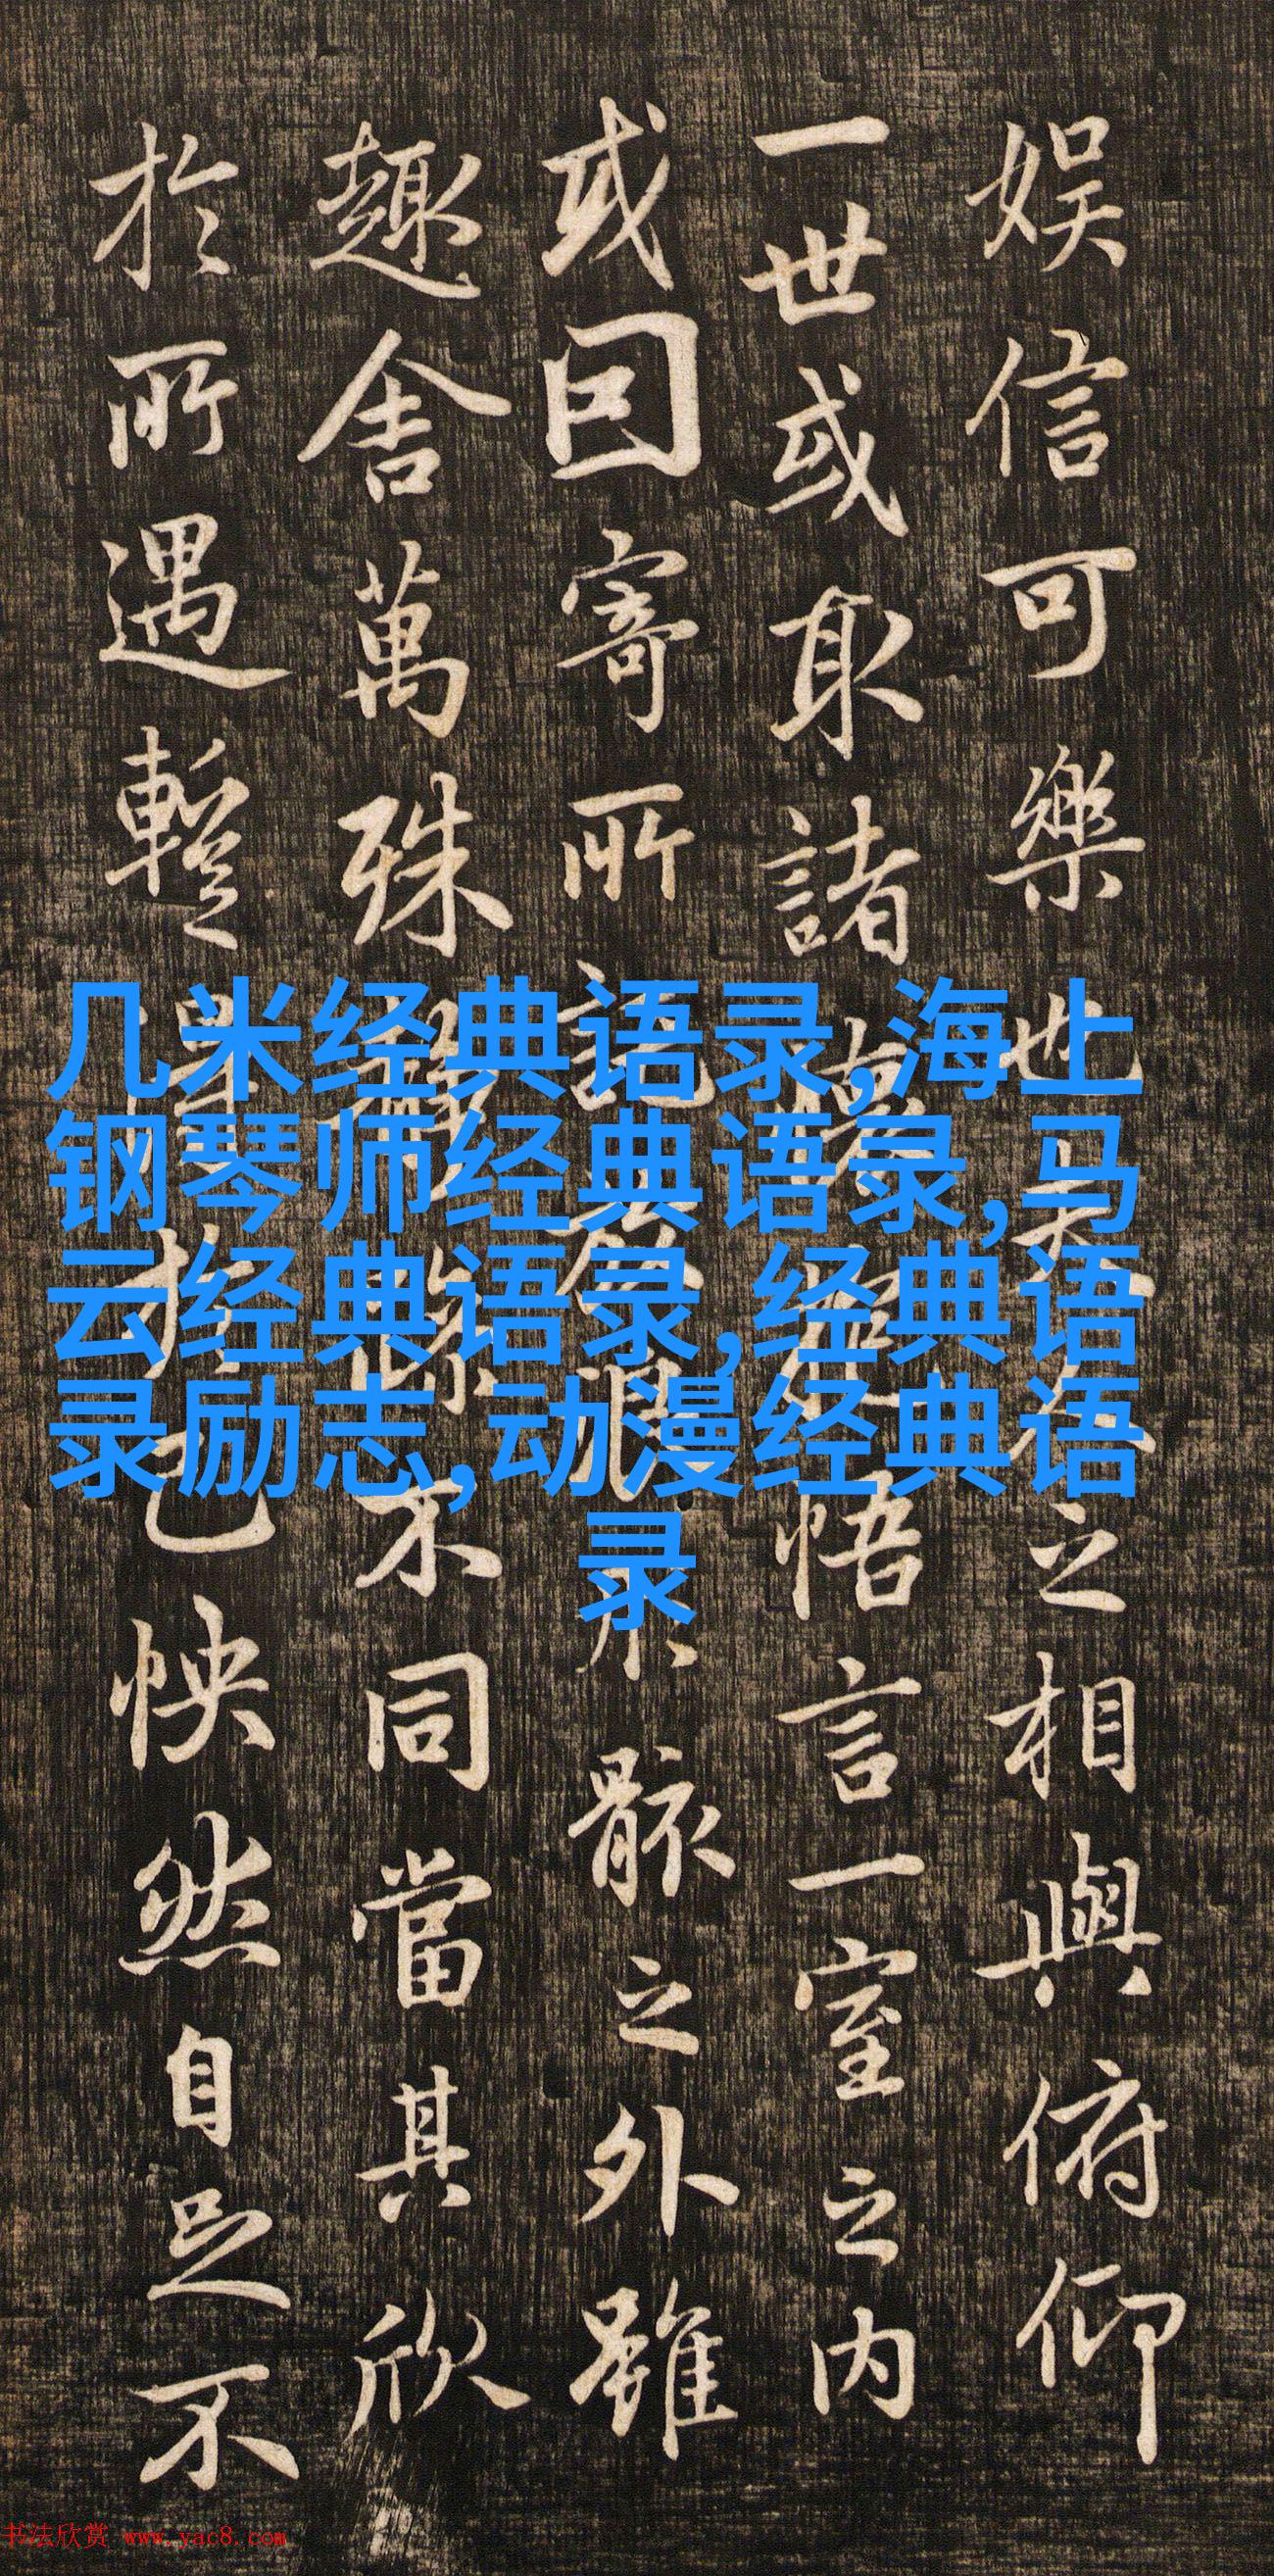 娱信可樂也夫之相與俯仰
一世或取諸懷悟言一室之内
或因寄所託放骸之外雖
趣舍萬殊不同當其欣
於所遇暫得於己怏然自足不
几米经典语录,海上
钢琴师经典语录,马
云经典语录,经典语
录励志,动漫经典语
录
书法欣赏 www.yac8.com